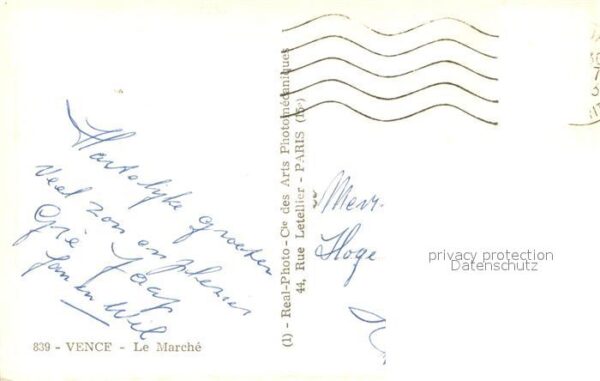 Hartelijke groeten
veel zon en plezier
Grie Jaap
Jan en Wil
839 - VENCE - Le Marché
(1) - Real-Photo - Cie des Arts Photomécaniques
44, Rue Letellier - PARIS (15e)
Mevr.
Hoge
privacy protection
Datenschutz